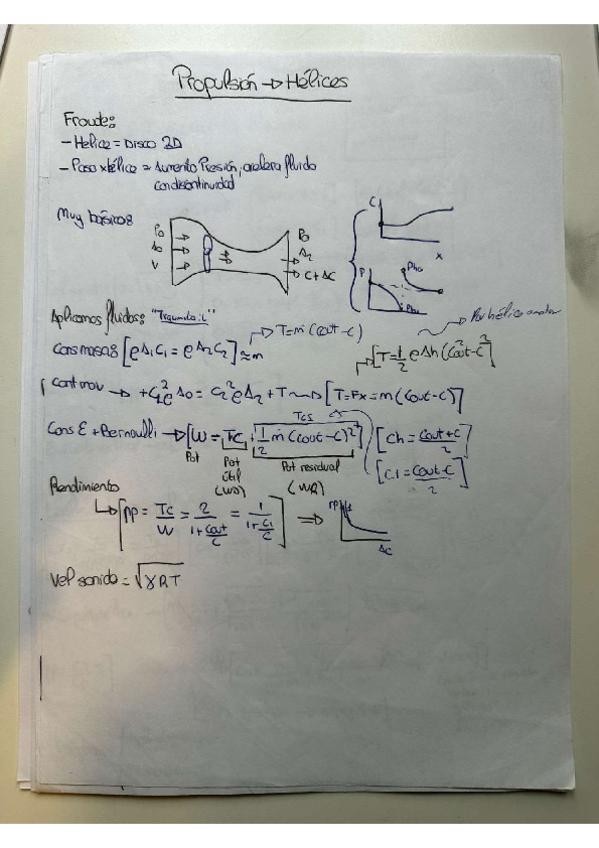 Propulsión → Hélices
Froude:
- Helice = Disco 2D
- Paso x hélice = Aumento Presión, acelera fluido
con discontinuidad
Muy básicos
P0
A0
V
P0
A2
C + ΔC
C
x
P
Pho
Applicamos fluidos: "Tragumita :c"
T = ṁ (Cout - C)
Cons masa: [ρ A1 C1 = ρ A2 C2] ≈ ṁ
[T = 1/2 ρ Ah (Cout² - C²)]
Cant mov → + C1² ρ A0 = C2² ρ A2 + T → [T = Fx = ṁ (Cout - C)]
Cons E + Bernoulli → [W = TC + 1/2 ṁ (Cout - C)²]
[Ch = (Cout + C)/2]
[Ci = (Cout - C)/2]
Pot
Pot
útil
Pot residual
(WR)
Rendimiento
[ηp = TC/W = 2/(1 + Cout/C) = 1/(1 + Ci/C)] ⇒
ηp
ΔC
Vel sonido = √(γRT)